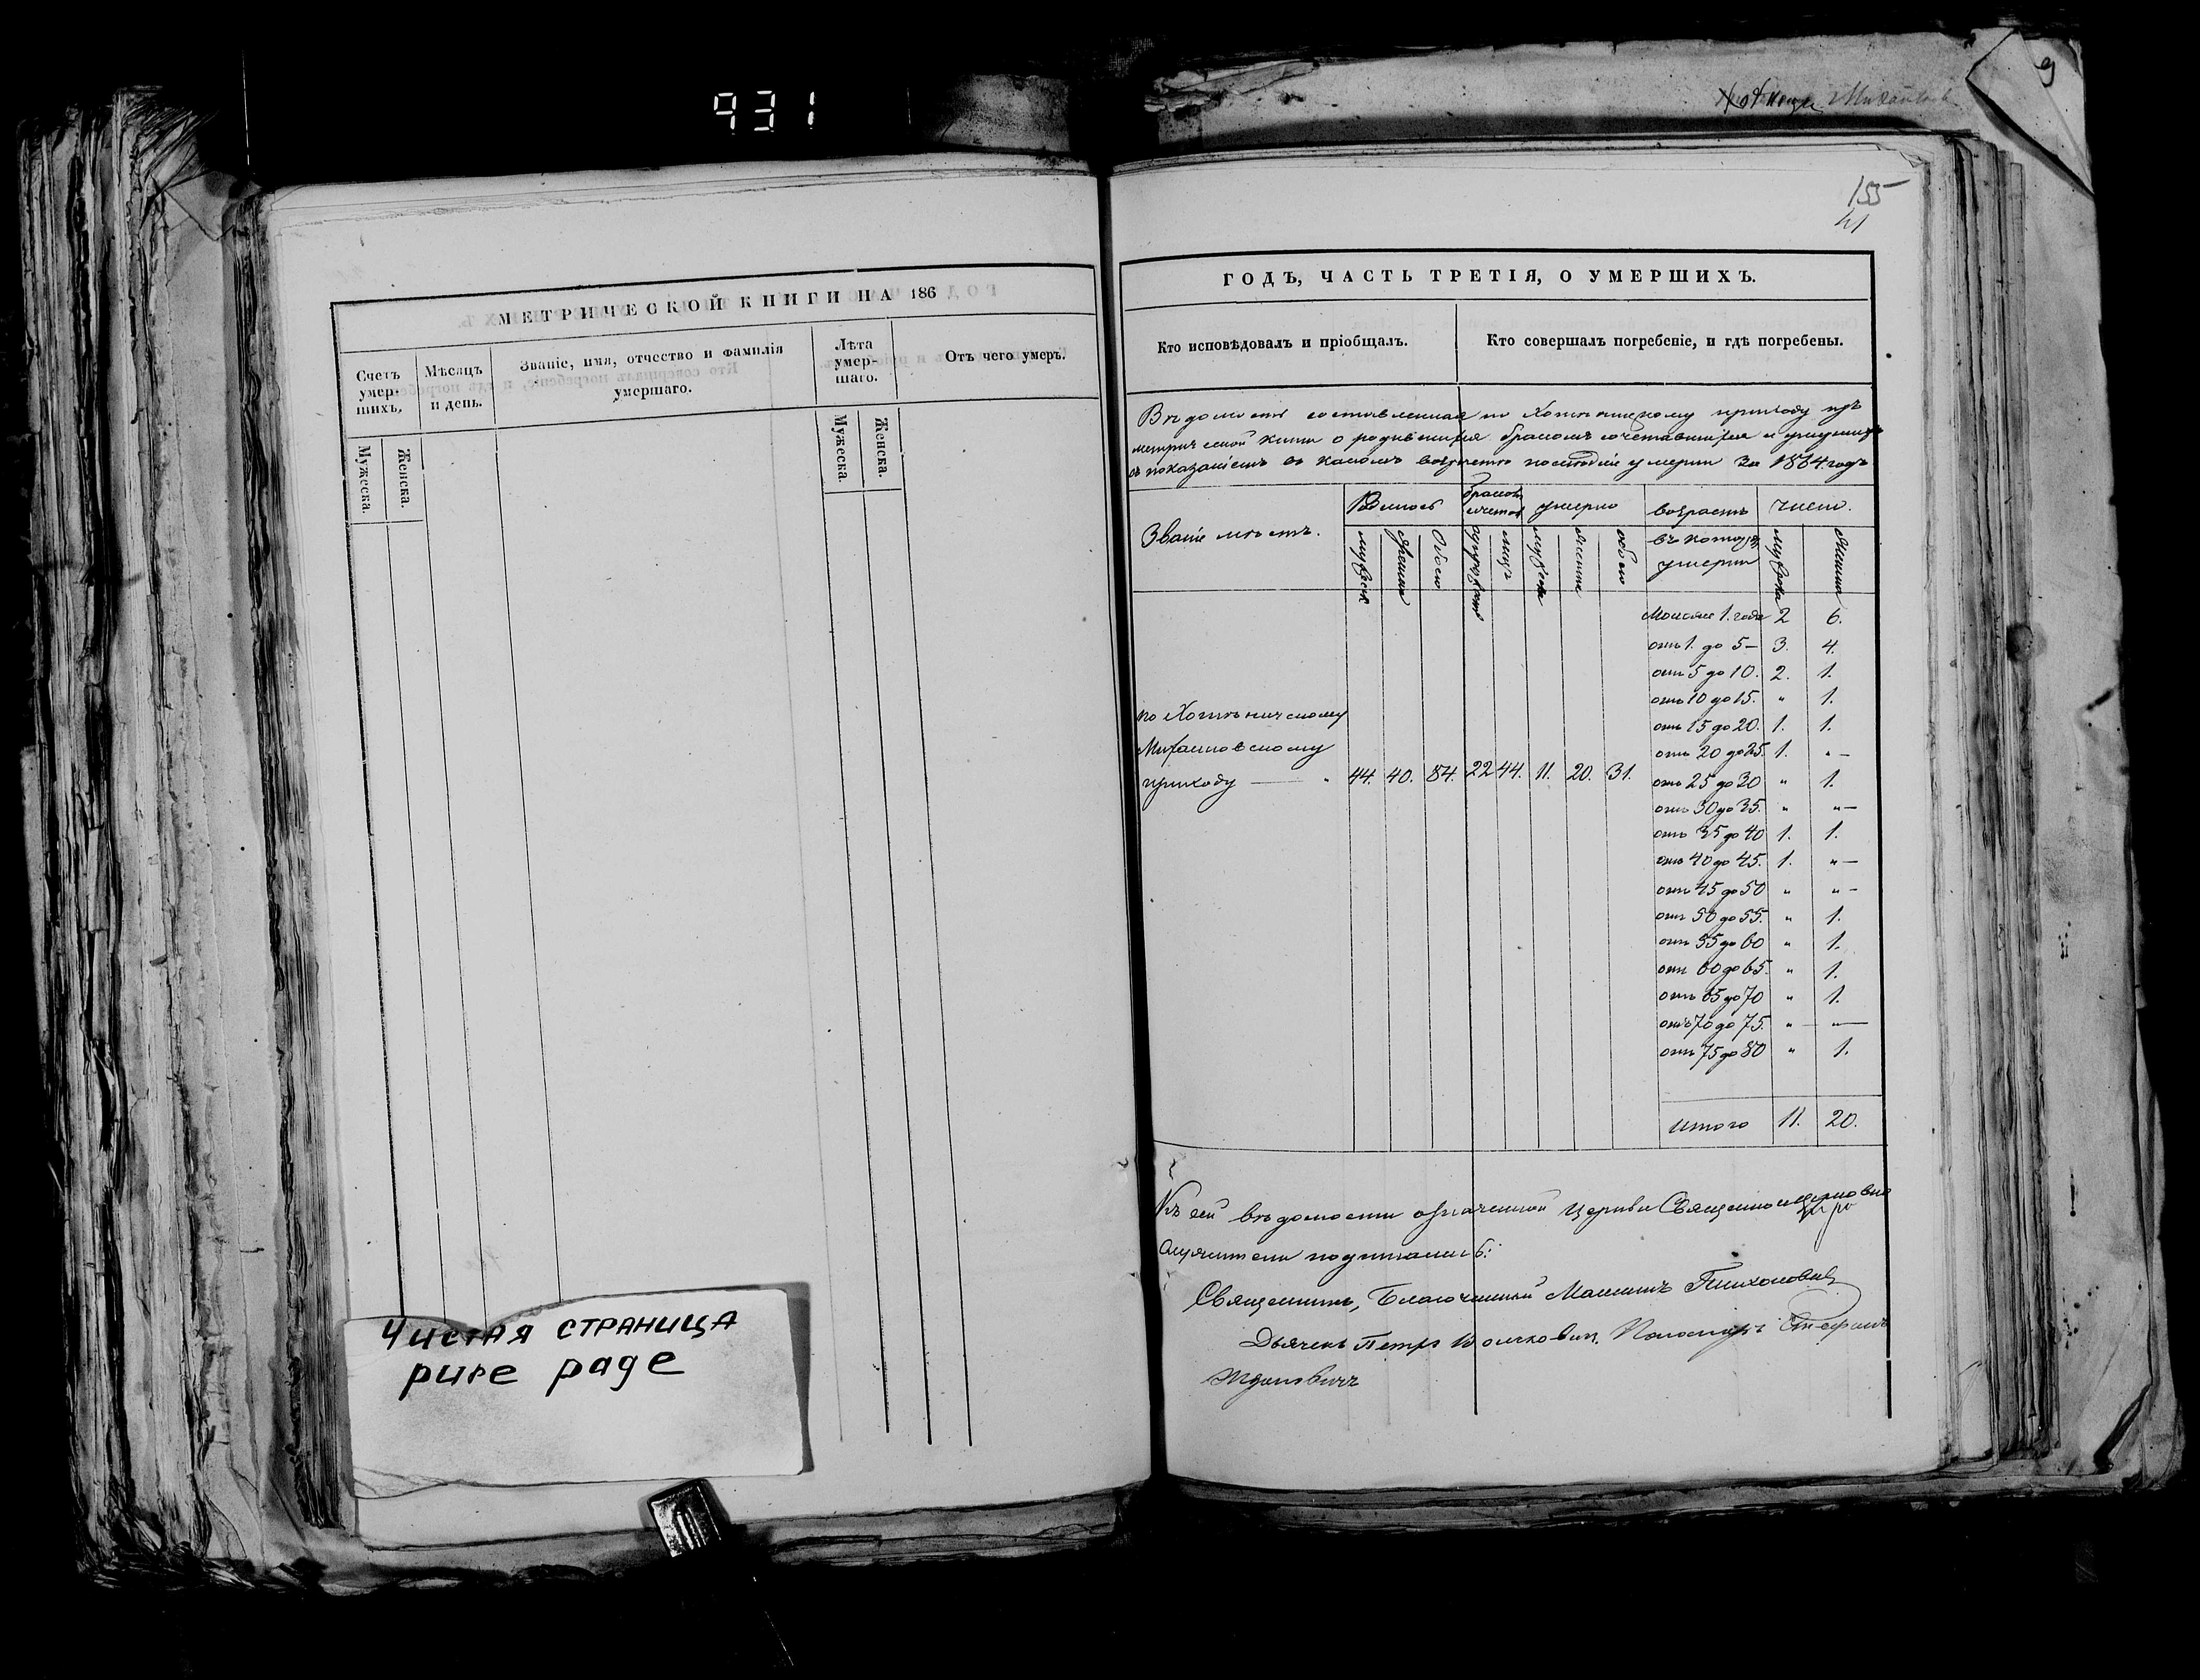 931
9
155
41
МЕТРИЧЕСКОЙ КНИГИ НА 186
Счетъ умер-шихъ.
Мѣсяцъ и день.
Званіе, имя, отчество и фамилія умершаго.
Лѣта умер-шаго.
Отъ чего умеръ.
Мужеска.
Женска.
Мужеска.
Женска.
Чистая страница
pure page
ГОДЪ, ЧАСТЬ ТРЕТІЯ, О УМЕРШИХЪ.
Кто исповѣдовалъ и пріобщалъ.
Кто совершалъ погребеніе, и гдѣ погребены.
Вѣдомость составленная по Хотѣничскому приходу изъ
метрической книги о родившихся бракомъ сочетавшихся и умершихъ
съ показаніемъ въ какомъ возрастѣ послѣдніе умерли за 1864 годъ
Званіе мѣстъ.
Родилось
умерло
возрастъ
число.
въ котор.
умерли
Обоего
лицъ
обоего
Моложе 1. года 2 6.
отъ 1. до 5 — 3. 4.
отъ 5 до 10. 2. 1.
отъ 10 до 15. " 1.
отъ 15 до 20. 1. 1.
отъ 20 до 25. 1. " —
отъ 25 до 30 " 1.
отъ 30 до 35. " " —
отъ 35 до 40 1. 1.
отъ 40 до 45. 1. " —
отъ 45 до 50 " " —
отъ 50 до 55. " 1.
отъ 55 до 60 " 1.
отъ 60 до 65. " 1.
отъ 65 до 70 " 1.
отъ 70 до 75. " — " —
отъ 75 до 80 " 1.
по Хотѣничскому
Михайловскому
приходу — " 44. 40. 84. 22 44. 11. 20. 31.
итого 11. 20.
Къ сей вѣдомости означенной церкви Священно
служители подписались:
Священникъ, Благочинный Тихоновичъ
Дьячекъ Петръ Пономарь Стефанъ
Ждановичъ